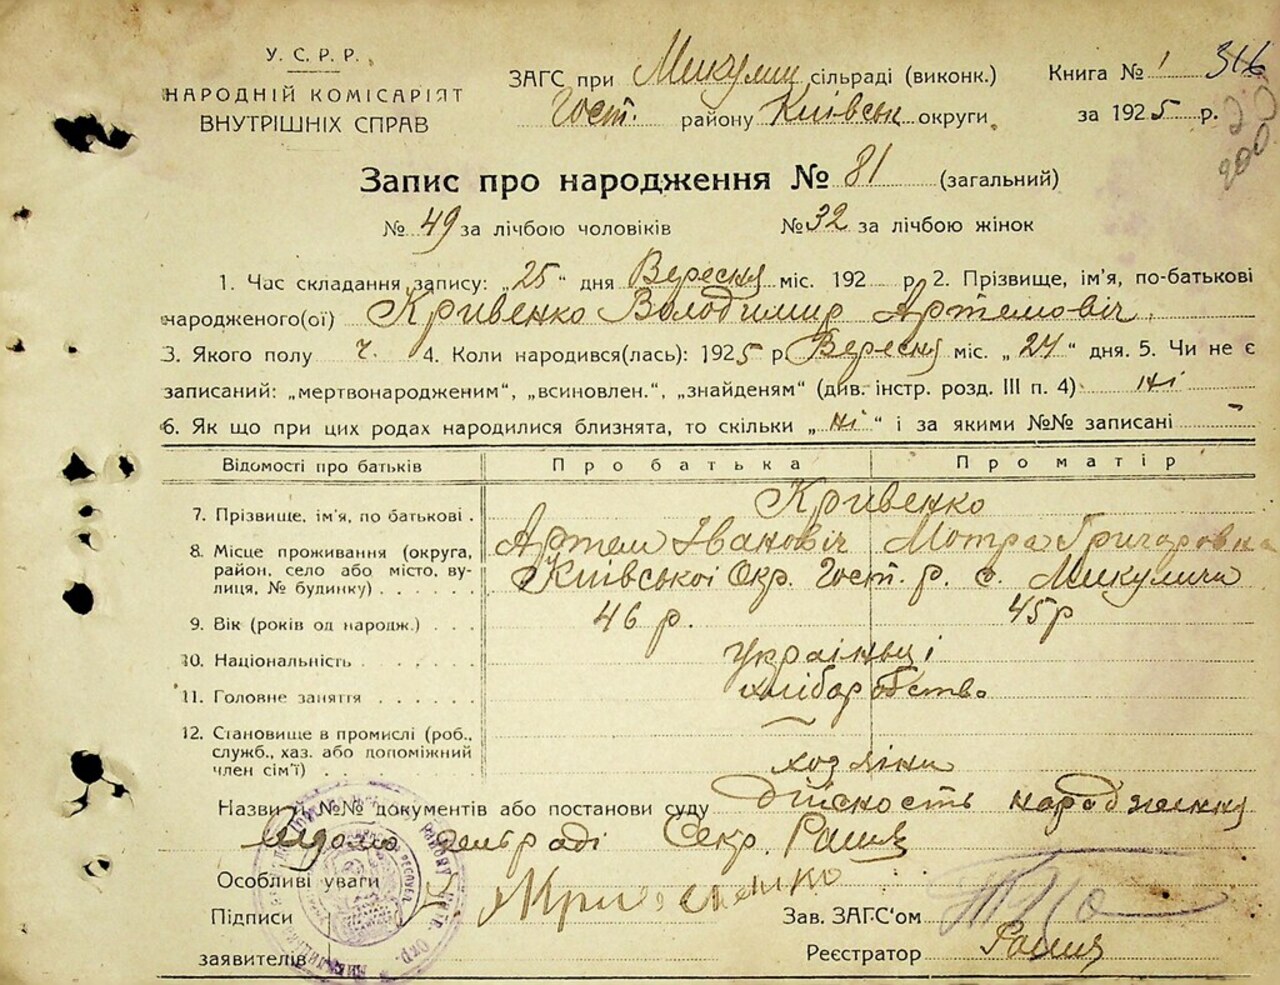 У. С. Р. Р.
НАРОДНІЙ КОМІСАРІЯТ
ВНУТРІШНІХ СПРАВ
ЗАГС при Микулич сільраді (виконк.)
Гост. району Київськ округи.
Книга № 1 316
за 1925 р.
200
Запис про народження № 81 (загальний)
№ 49 за лічбою чоловіків № 32 за лічбою жінок
1. Час складання запису: „25“ дня Вересня міс. 192 р 2. Прізвище, ім'я, по-батькові
народженого(ої) Кривенко Володимир Артемовіч.
3. Якого полу ч. 4. Коли народився(лась): 1925 р. Вересня міс. „24“ дня. 5. Чи не є
записаний: „мертвонародженим“, „всиновлен.“, „знайденям“ (див. інстр. розд. III п. 4) ні
6. Як що при цих родах народилися близнята, то скільки „ні“ і за якими №№ записані –
Відомості про батьків Про батька Про матір
7. Прізвище, ім'я, по батькові . Кривенко
Артем Івановіч Мотра Григоровна
8. Місце проживання (округа,
район, село або місто, ву-
лиця, № будинку) . . . . . . Київської Окр. Гост. р. с. Микуличи
9. Вік (років од народж.) . . . 46 р. 45 р
10. Національність . . . . . . українці
11. Головне заняття . . . . . хліборобство
12. Становище в промислі (роб.,
служб., хаз. або допоміжний
член сім'ї) . . . . . . . . . хозяіни
Назви й №№ документів або постанови суду Дійсность народження
відомо сельраді Секр.
Особливі уваги
Підписи Кривенко Зав. ЗАГС'ом
заявителів Реєстратор